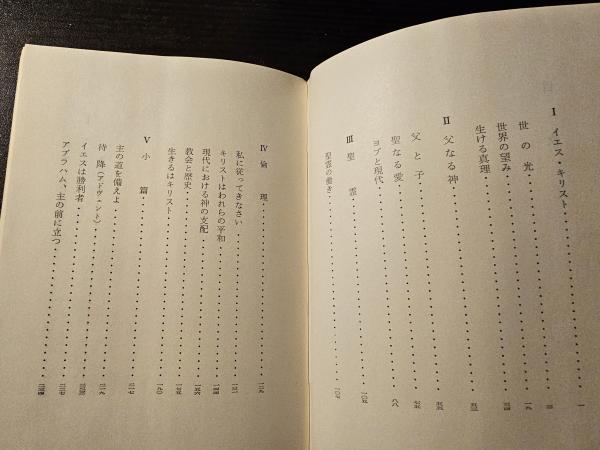 I イエス・キリスト 一
世の光 三
世界の望み 一九
生ける真理 三四
II 父なる神 五三
父と子 五五
聖なる愛 七五
ヨブと現代 八八
III 聖霊 一〇五
聖霊の働き 一〇七
IV 倫理
私に従ってきなさい
キリストはわれらの平和
現代における神の支配
教会と歴史
生きるはキリスト 一九〇
V 小篇 二一七
主の道を備えよ 二一九
待降（アドヴェント）
イエスは勝利者
アブラハム、主の前に立つ